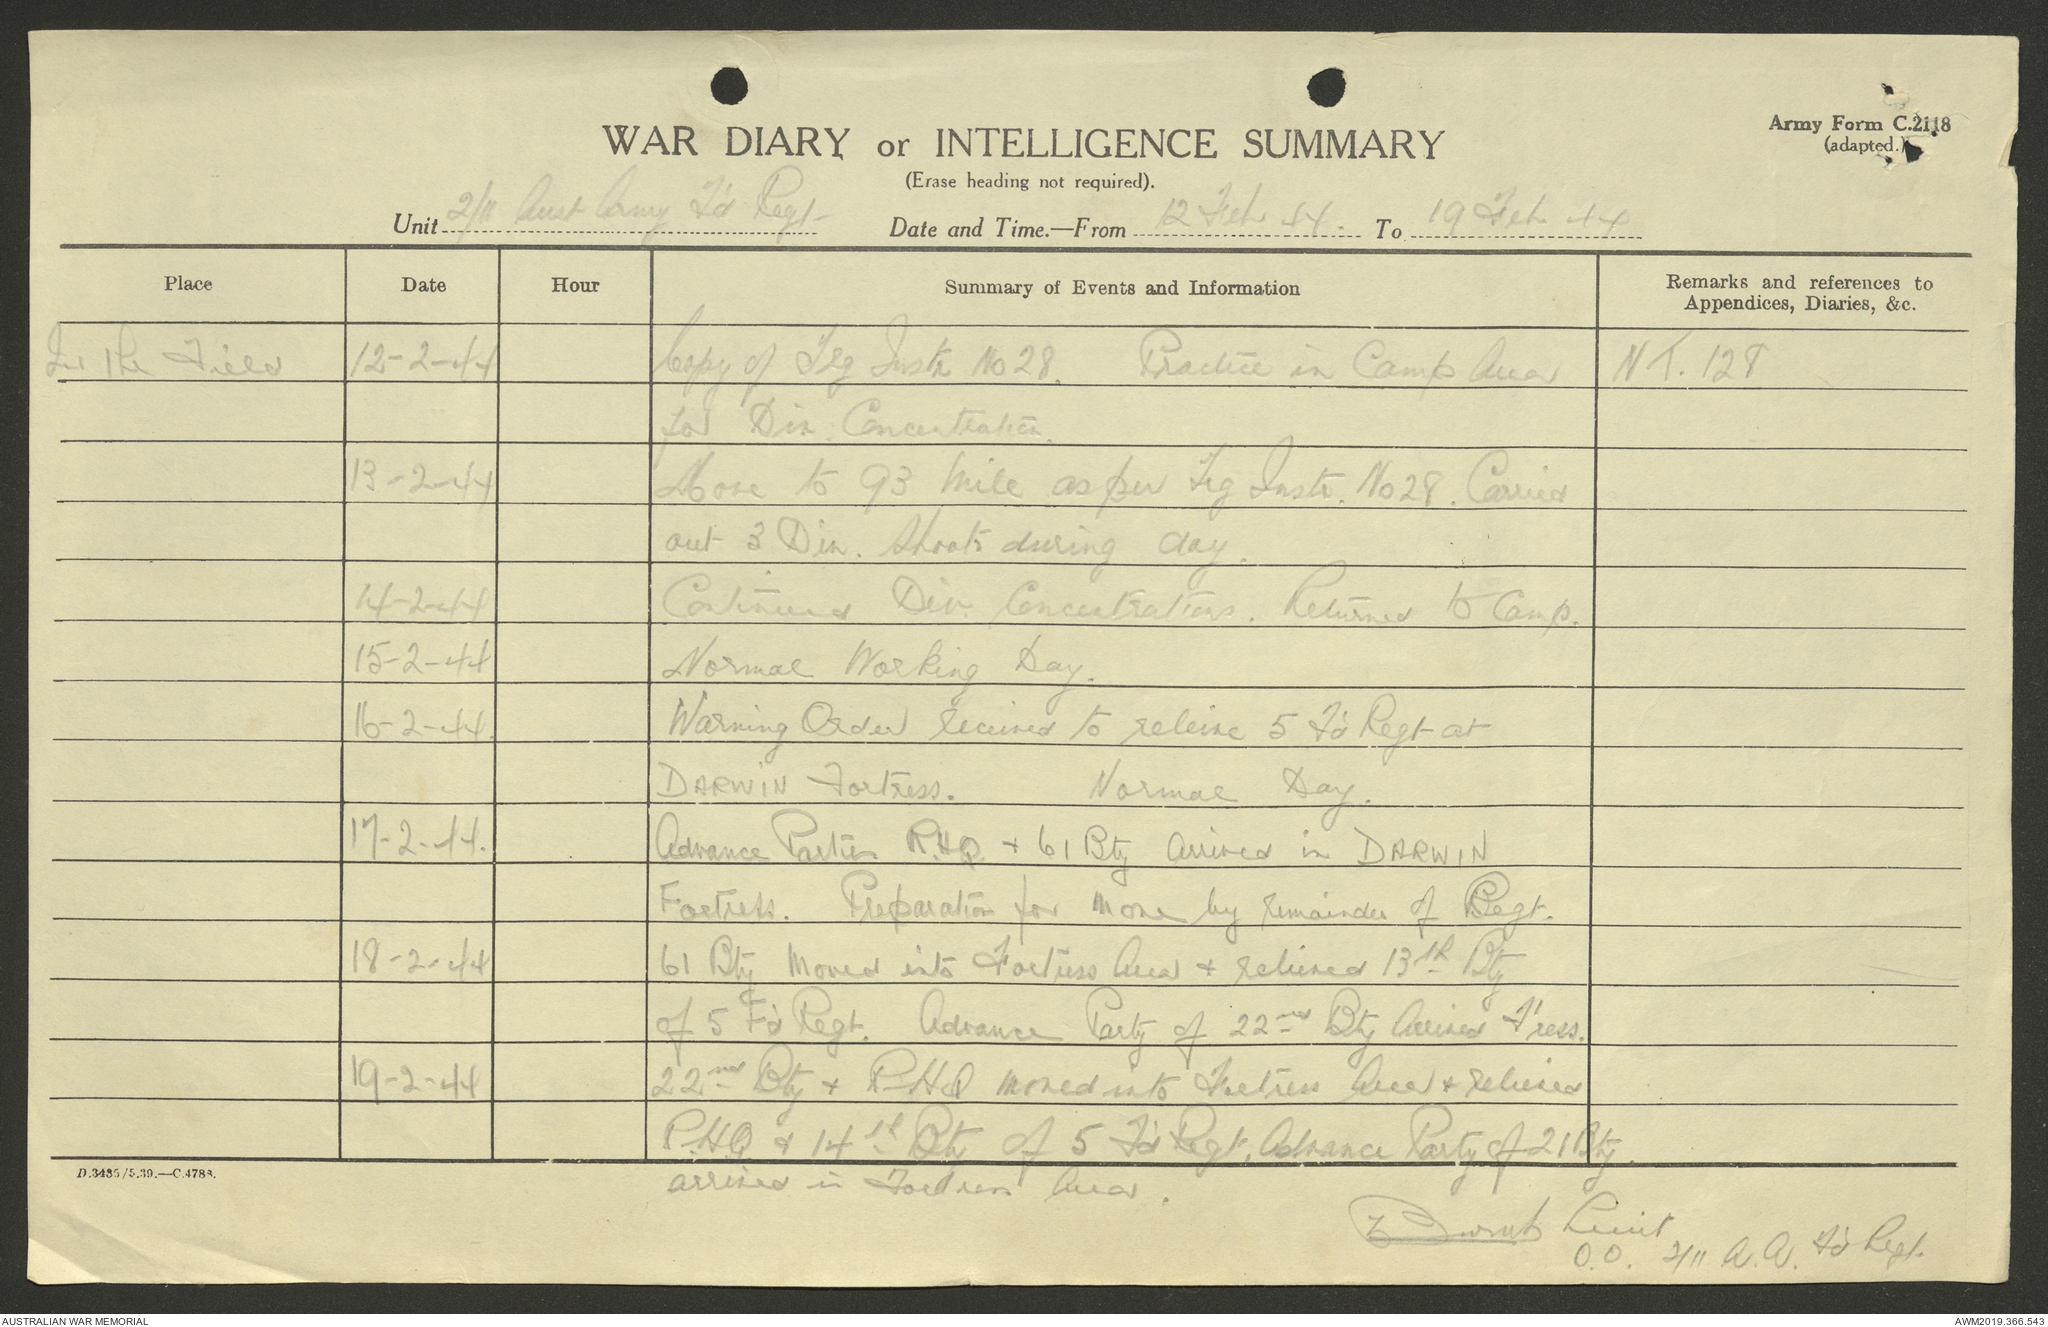 Army Form C.2118
(adapted.)
WAR DIARY or INTELLIGENCE SUMMARY
(Erase heading not required).
Unit 2/11 Aust Army F'd Regt Date and Time.—From 12 Feb 44. To 19 Feb 44
Place Date Hour Summary of Events and Information Remarks and references to Appendices, Diaries, &c.
In the Field 12-2-44 Copy of Trg Instr No 28. Practice in Camp Area N T. 128
for Div. Concentration.
13-2-44 Move to 93 Mile as per Trg Instr. No 28. Carried
out 3 Div. Shoots during day.
14-2-44 Continued Div. Concentrations. Returned to Camp.
15-2-44 Normal Working Day.
16-2-44. Warning Order received to releive 5 F'd Regt at
DARWIN Fortress. Normal Day.
17-2-44. Advance Parties R.H.Q. + 61 Bty arrived in DARWIN
Fortress. Preparation for move by remainder of Regt.
18-2-44 61 Bty moved into Fortress Area + relieved 13th Bty
of 5 F'd Regt. Advance Party of 22nd Bty Arrived F'ress.
19-2-44 22nd Bty + RHQ moved into Fortress Area + relieved
R.H.Q + 14th Bty of 5 F'd Regt. Advance Party of 21 Bty.
arrived in Fortress Area.
D.3485/5.39.—C.4783.
Lieut
O.O. 2/11 A.A. F'd Regt.
AUSTRALIAN WAR MEMORIAL AWM2019.366.543